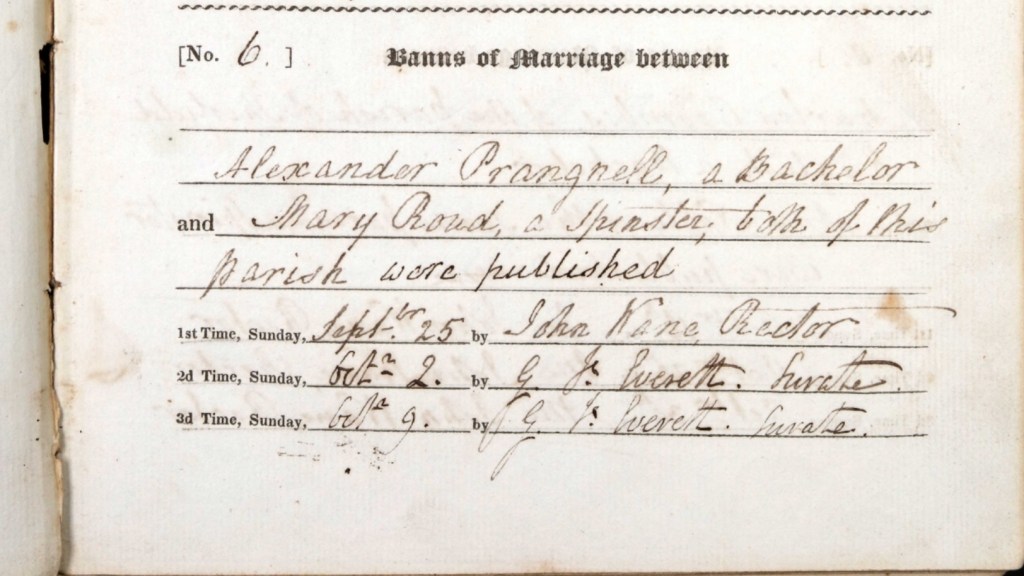 [No. 6. ] Banns of Marriage between
Alexander Prangnell, a Bachelor
and Mary Roud, a Spinster, both of this
Parish were published
1st Time, Sunday, Septbr. 25 by John Vane Rector
2d Time, Sunday, Octr. 2. by G Fk Everett. Curate.
3d Time, Sunday, Octr 9. by G Fk Everett. Curate.